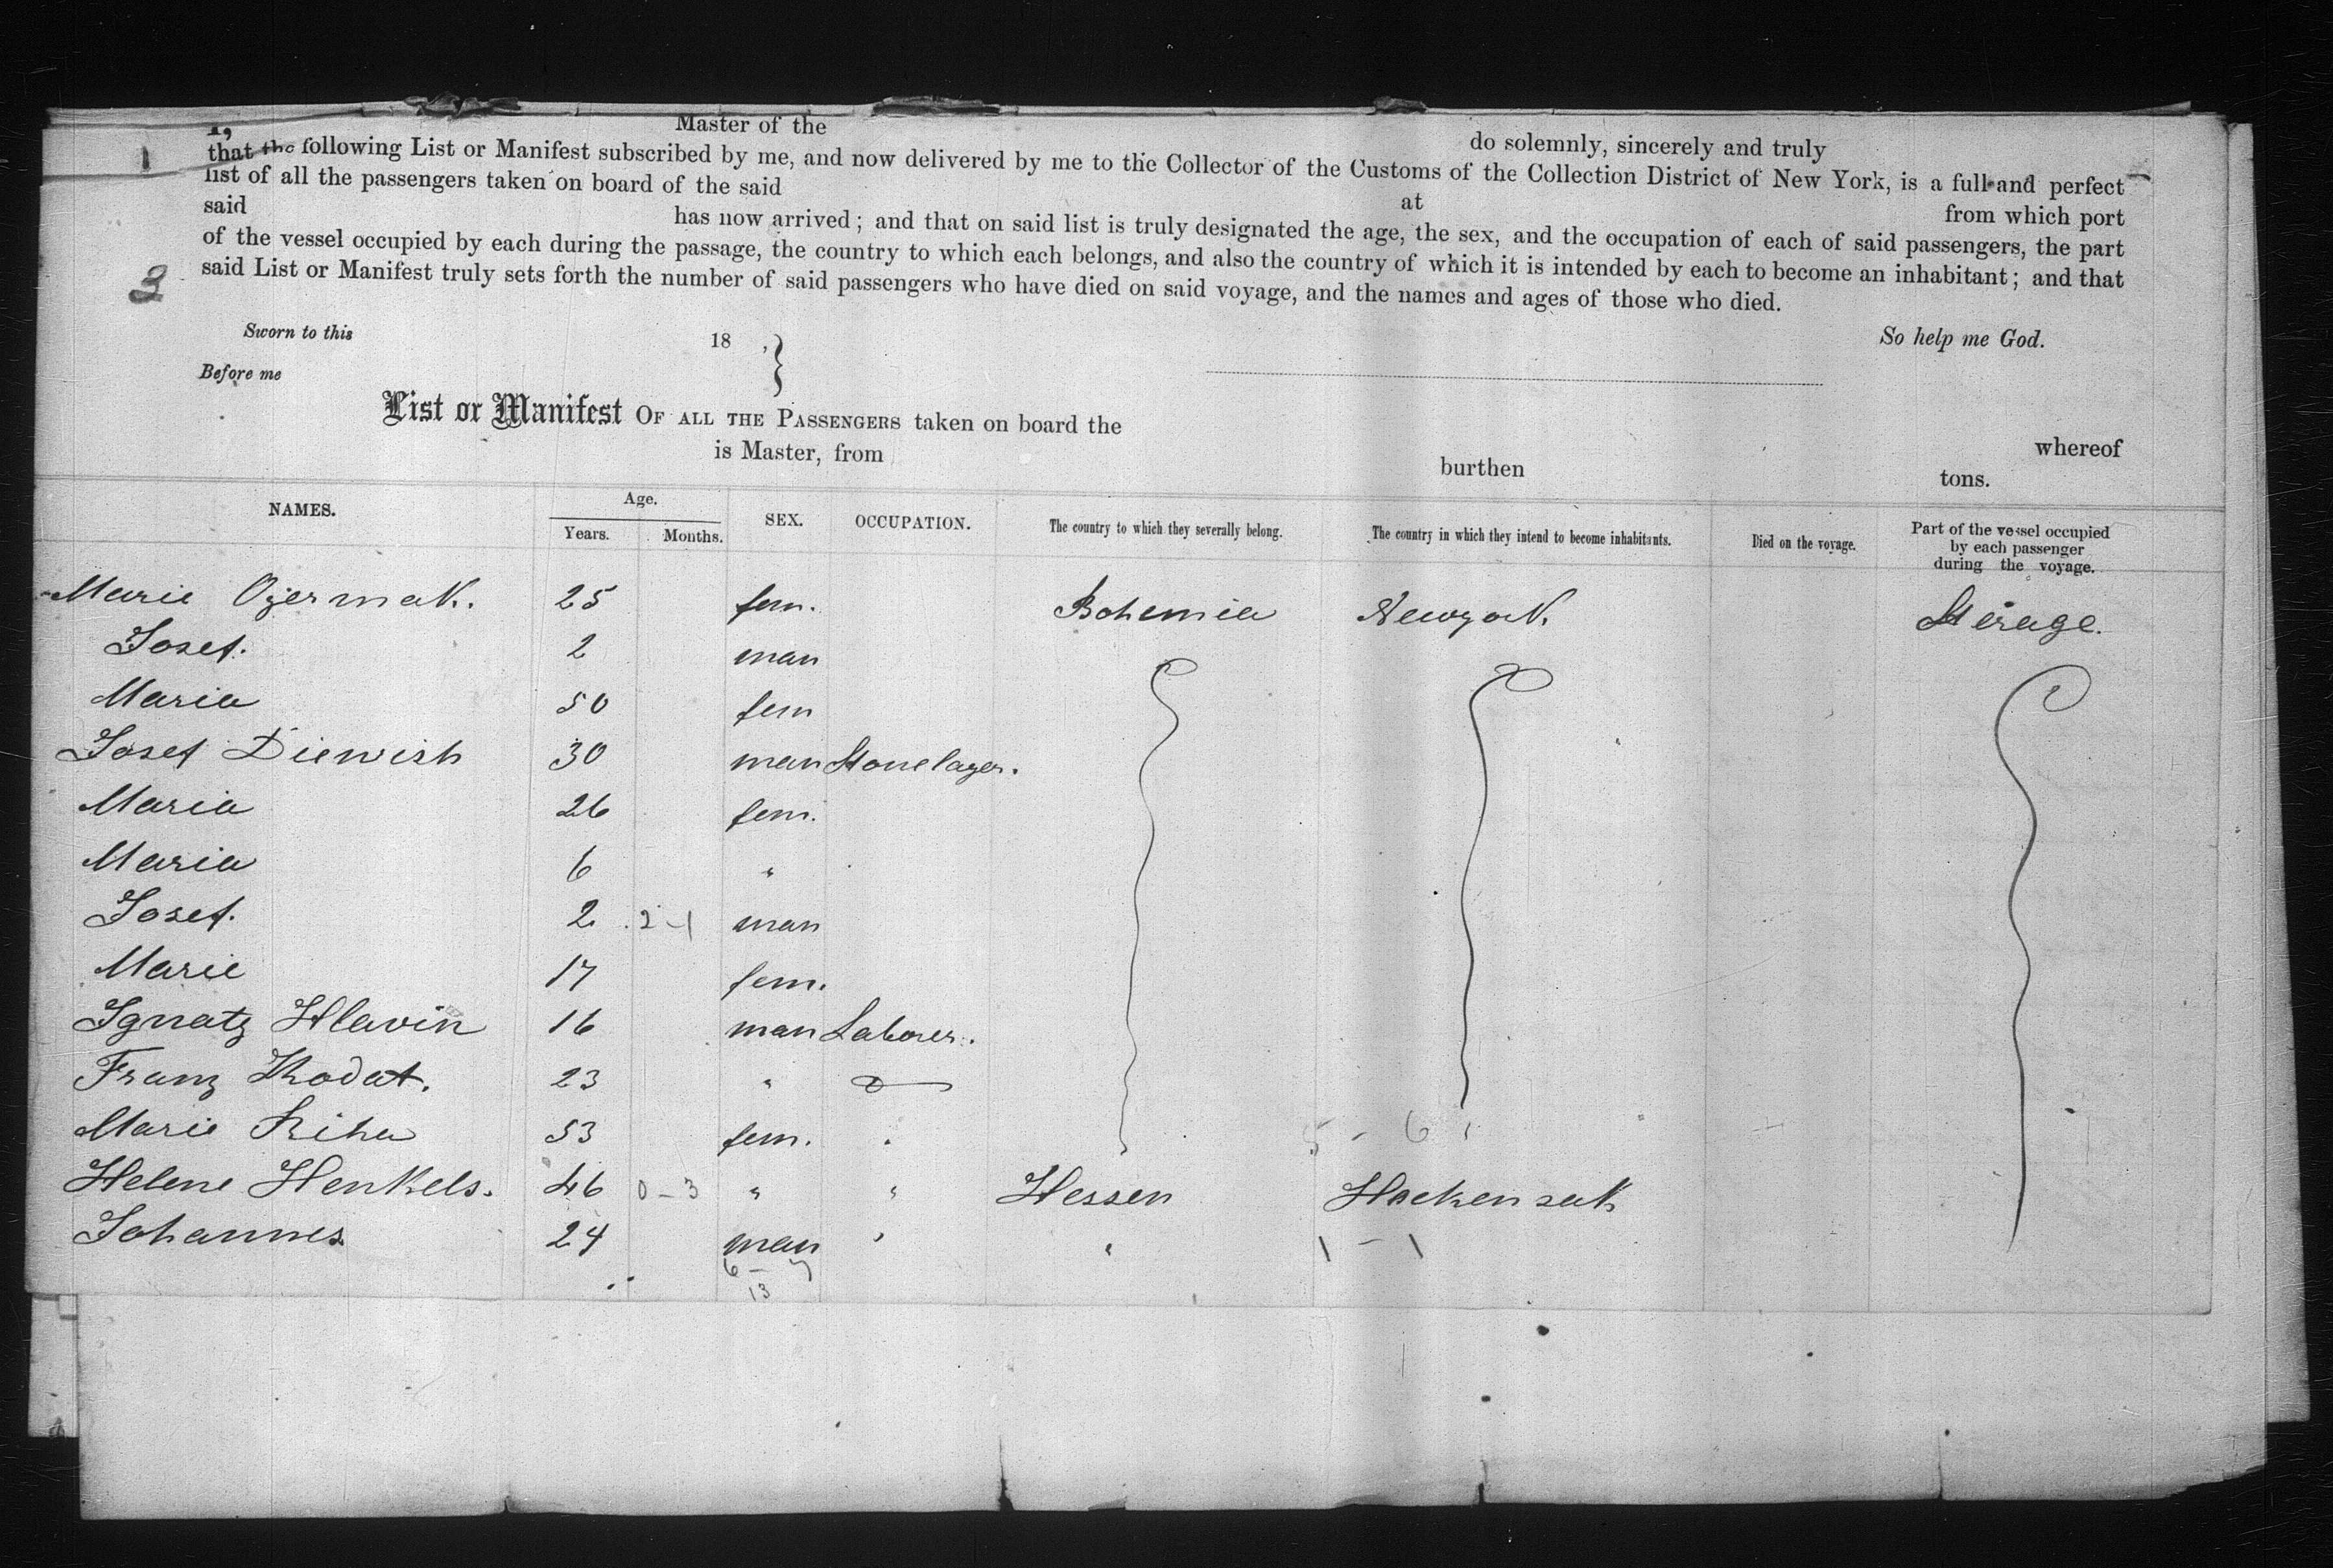 1
I, Master of the do solemnly, sincerely and truly
that the following List or Manifest subscribed by me, and now delivered by me to the Collector of the Customs of the Collection District of New York, is a full and perfect
list of all the passengers taken on board of the said at from which port
said has now arrived; and that on said list is truly designated the age, the sex, and the occupation of each of said passengers, the part
of the vessel occupied by each during the passage, the country to which each belongs, and also the country of which it is intended by each to become an inhabitant; and that
said List or Manifest truly sets forth the number of said passengers who have died on said voyage, and the names and ages of those who died.
3
Sworn to this 18 , So help me God.
Before me
List or Manifest OF ALL THE PASSENGERS taken on board the whereof
is Master, from burthen tons.
NAMES. Age. Years. Months. SEX. OCCUPATION. The country to which they severally belong. The country in which they intend to become inhabitants. Died on the voyage. Part of the vessel occupied by each passenger during the voyage.
Marie Ozermak. 25 fem. Bohemia Newyork. Sterage.
Josef. 2 man
Maria 50 fem
Josef Diewish 30 man Stonelayer.
Maria 26 fem.
Maria 6 "
Josef. 2 2-1 man
Marie 17 fem.
Ignatz Hlavin 16 man Laborer.
Franz Khodat. 23 "
Marie Riha 53 fem. 5 - 6
Helene Henkels. 46 0-3 " " Hessen Hackensack
Johannes 24 man " " 1 - 1
6 - 7
13